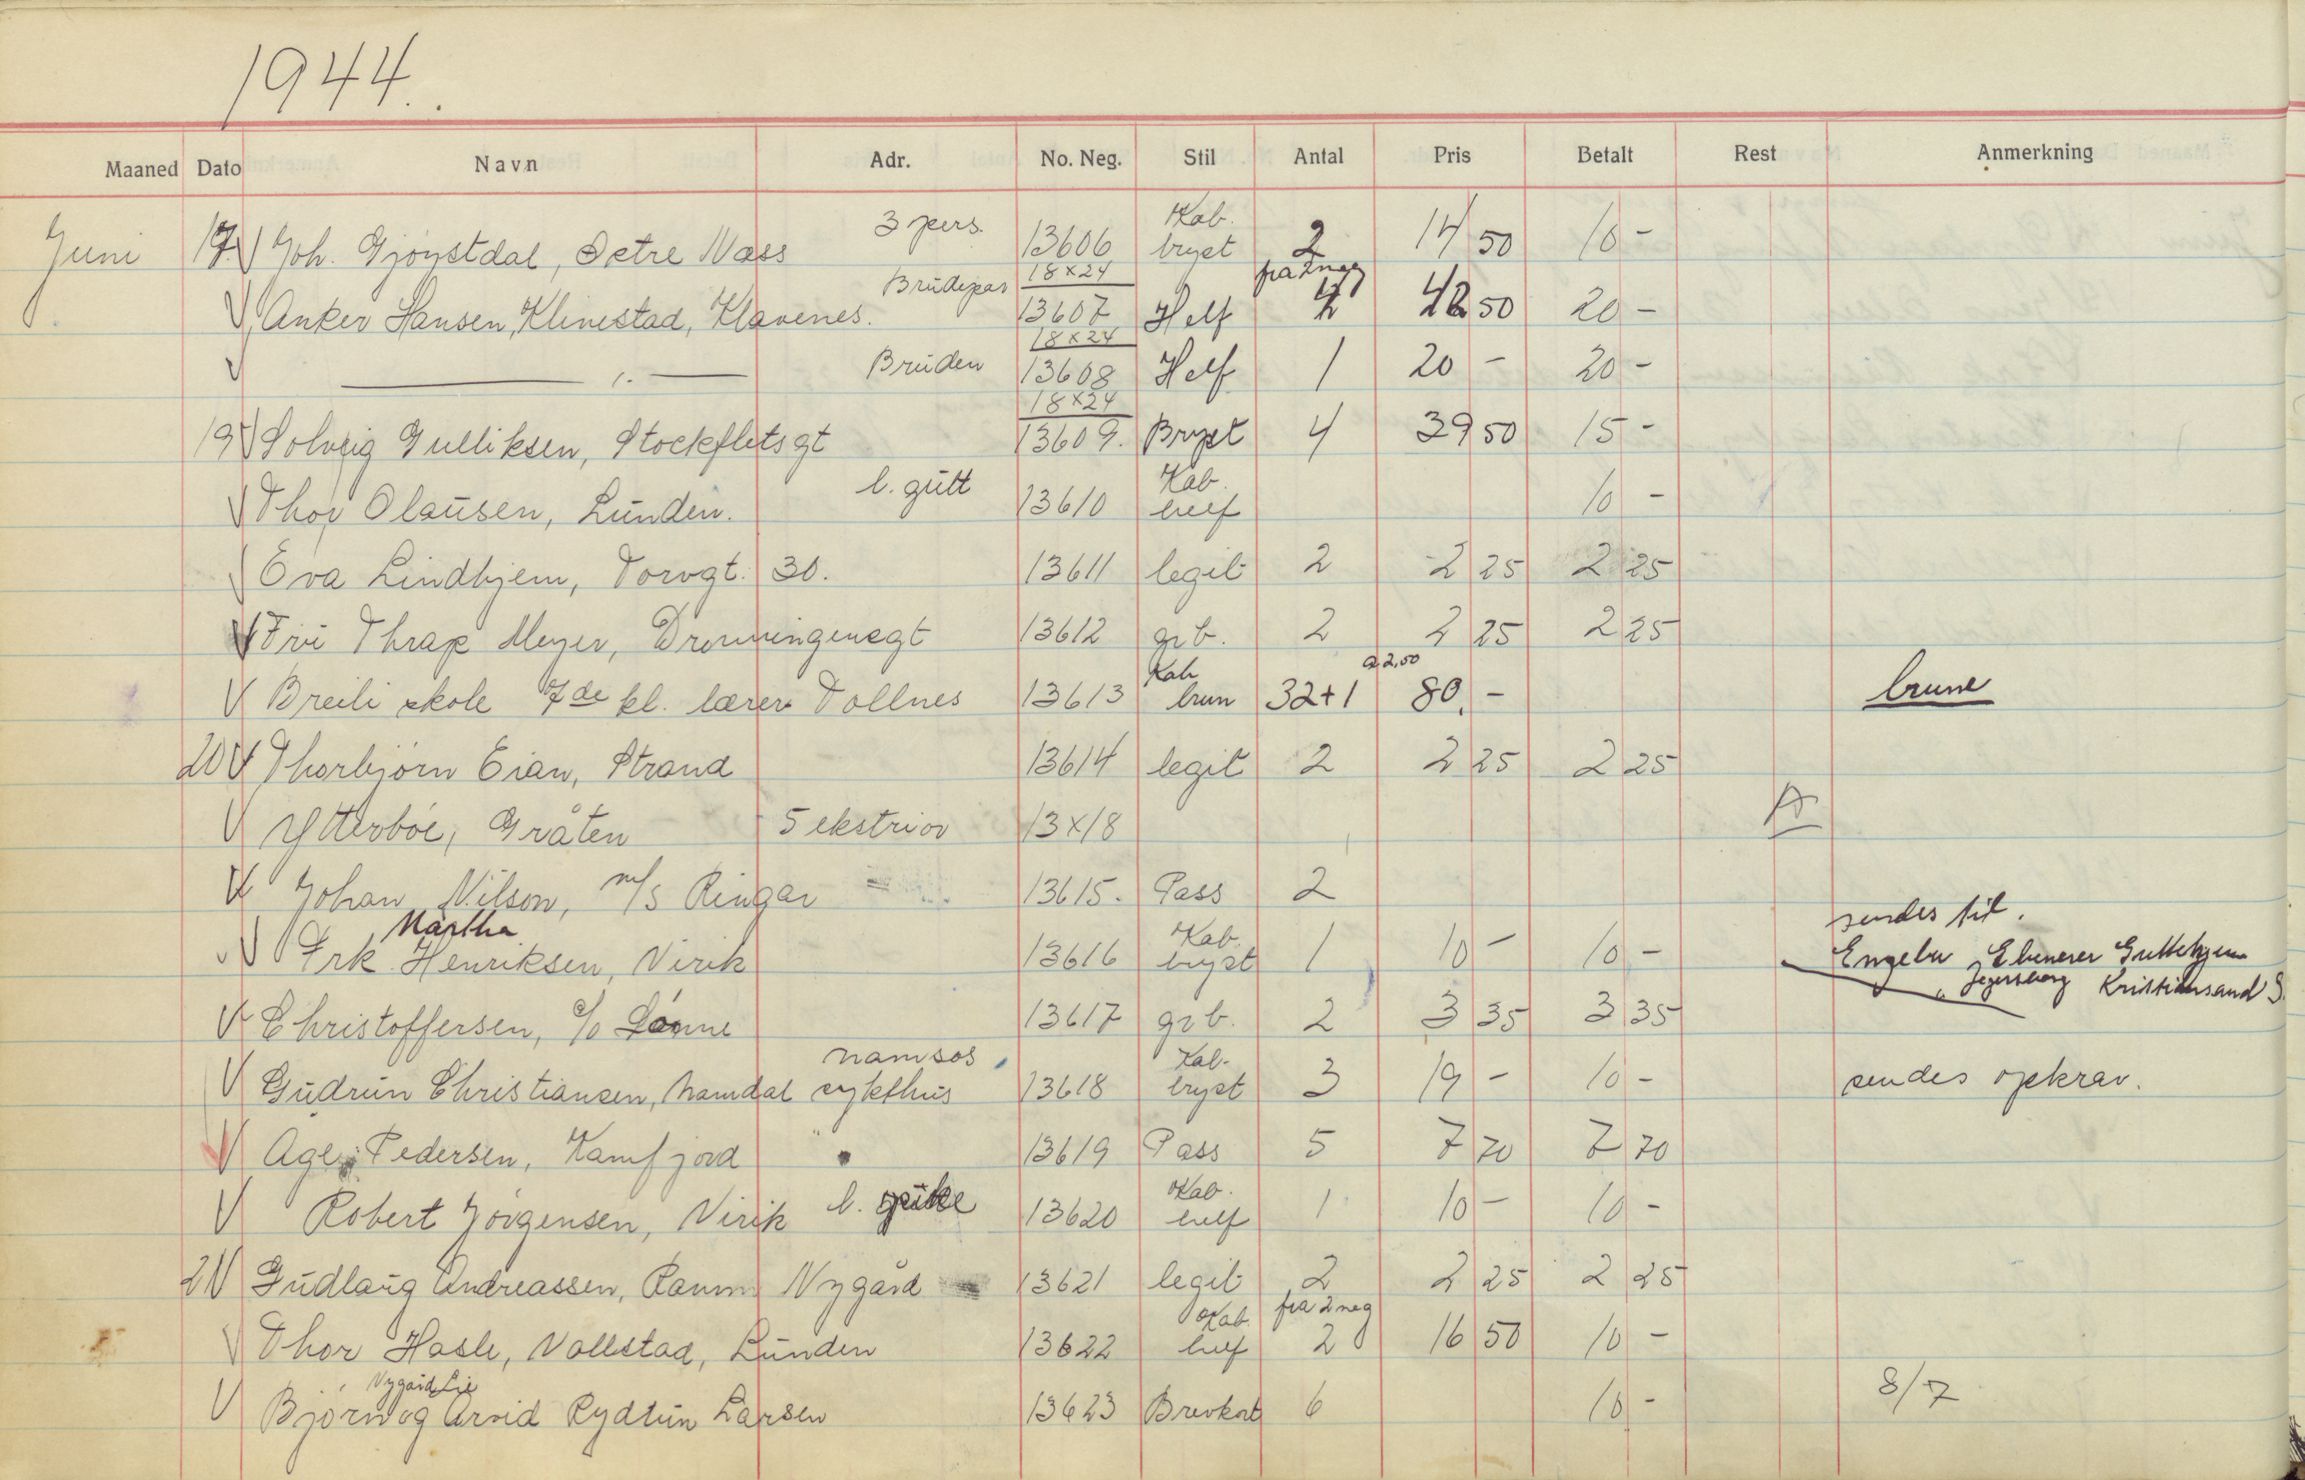 1944.
Maaned Dato Navn Adr. No. Neg. Stil Antal Pris Betalt Rest Anmerkning
3 pers. Kab.
Juni 17. V Joh. Gjøystdal, Østre Næss 13606 bryst 2 14 50 10 -
Brudepar 18x24 fra 2 neg
V Anker Hansen, Klinestad, Klavenes. 13607 Helf 4 42 50 20 -
18x24
V — " — Bruden 13608 Helf 1 20 - 20 -
18x24
19 V Solveig Gulliksen, Stockfletsgt 13609. Bryst 4 39 50 15 -
l. gutt Kab.
V Thor Olausen, Lunden. 13610 helf 10 -
V Eva Lindhjem, Torvgt. 30. 13611 legit 2 2 25 2 25
V Fru Thrap Meyer, Dronningensgt 13612 grb. 2 2 25 2 25
Kab a 2,50
V Breili skole 7de kl. lærer Tollnes 13613 brun 32+1 80,- brune
20 V Thorbjørn Eian, Strand 13614 legit 2 2 25 2 25
V Ytterbøe, Gråten 5 ekstriør 13x18 A
V Johan Nilson, m/s Ringar 13615. Pass 2
Martha Kab. sendes til.
V Frk. Henriksen, Virik 13616 bryst 1 10 - 10 - Engelu Ebeneser Guttehjem
Jegersberg Kristiansand S.
V Christoffersen, c/o Lønne 13617 grb. 2 3 35 3 35
Namsos Kab.
V Gudrun Christiansen, Namdal sykehus 13618 bryst 3 19 - 10 - sendes opkrav.
V Åge Pedersen, Kamfjord 13619 Pass 5 7 70 7 70
l. pike Kab.
V Robert Jørgensen, Virik 13620 helf 1 10 - 10 -
21 V Gudlaug Andreassen, Ramm Nygård 13621 legit 2 2 25 2 25
Kab. fra 2 neg
V Thor Hasle, Vollstad, Lunden 13622 helf 2 16 50 10 -
Nygård Lie
V Bjørn og Arvid Rydtun Larsen 13623 Brevkort 6 10 - 8/7